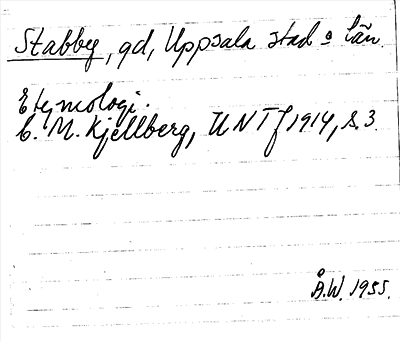 Stabby, gd, Uppsala stad o län.
Etymologi.
C. M. Kjellberg, UNT f 1914, s. 3.
Å.W. 1955.